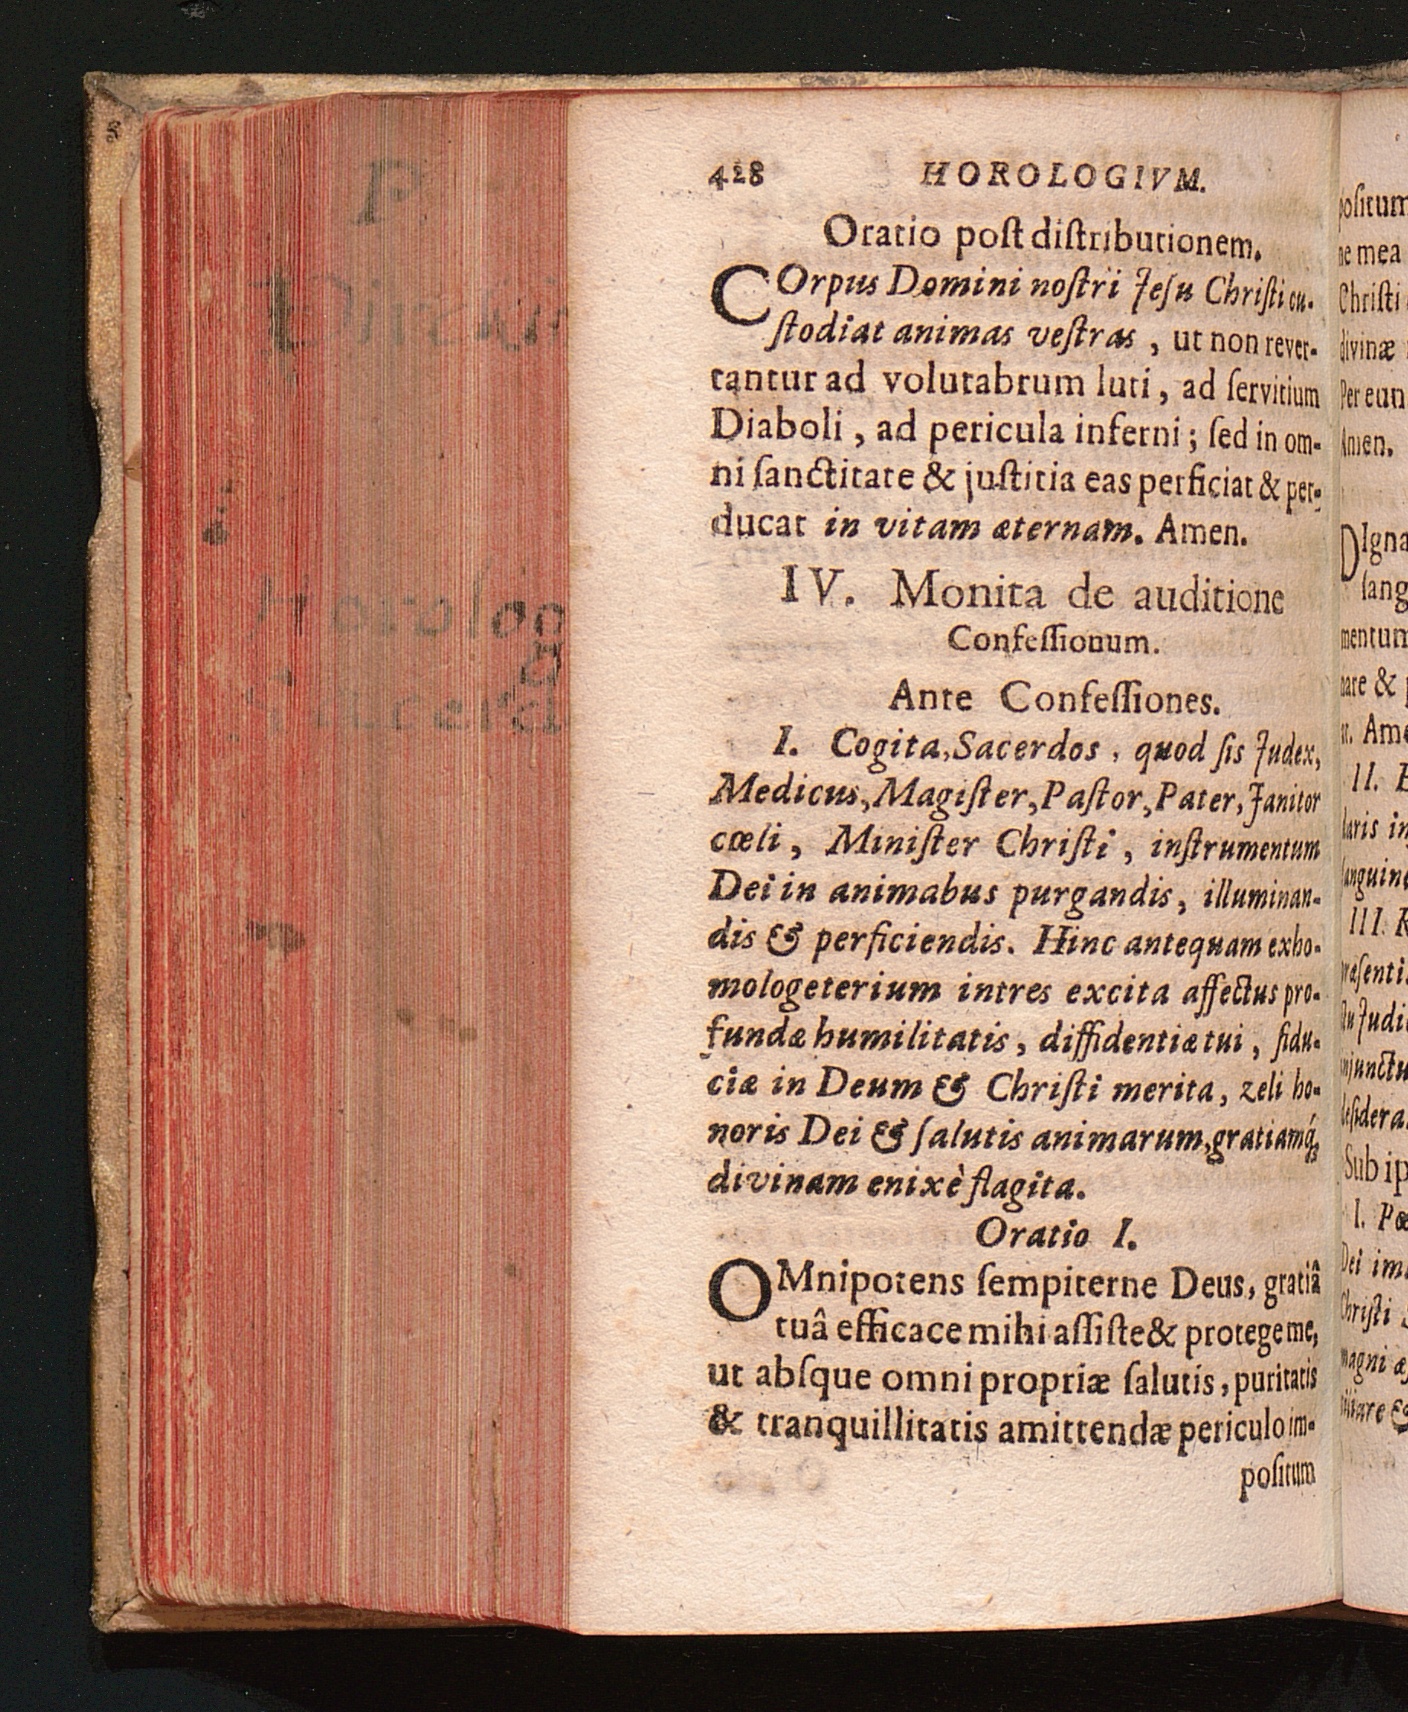 428 HOROLOGIVM.
Oratio poſt diſtributionem.
COrpus Domini noſtri Jeſu Chriſti cu-
ſtodiat animas veſtras, ut non rever-
tantur ad volutabrum luti, ad ſervitium
Diaboli, ad pericula inferni; ſed in om-
ni ſanctitate & juſtitia eas perficiat & per-
ducat in vitam æternam. Amen.
IV. Monita de auditione
Confeſſionum.
Ante Confeſſiones.
I. Cogita, Sacerdos, quod ſis Judex,
Medicus, Magiſter, Paſtor, Pater, Janitor
cœli, Miniſter Chriſti, inſtrumentum
Dei in animabus purgandis, illuminan-
dis & perficiendis. Hinc antequam exho-
mologeterium intres excita affectus pro-
fundæ humilitatis, diffidentiæ tui, fidu-
ciæ in Deum & Chriſti merita, zeli ho-
noris Dei & ſalutis animarum, gratiamq́;
divinam enixè flagita.
Oratio I.
OMnipotens ſempiterne Deus, gratiâ
tuâ efficace mihi aſſiſte & protege me,
ut abſque omni propriæ ſalutis, puritatis
& tranquillitatis amittendæ periculo im-
poſitum
poſitum
ne mea
Chriſti
divinæ
Per eun
Amen.
DIgna
ſang
mentum
nare &
Ame
II.
laris in
ſanguine
III.
præſenti
Judi
injunctu
deſidera
Sub ip
I. Pœ
Dei im
Chriſti
magni